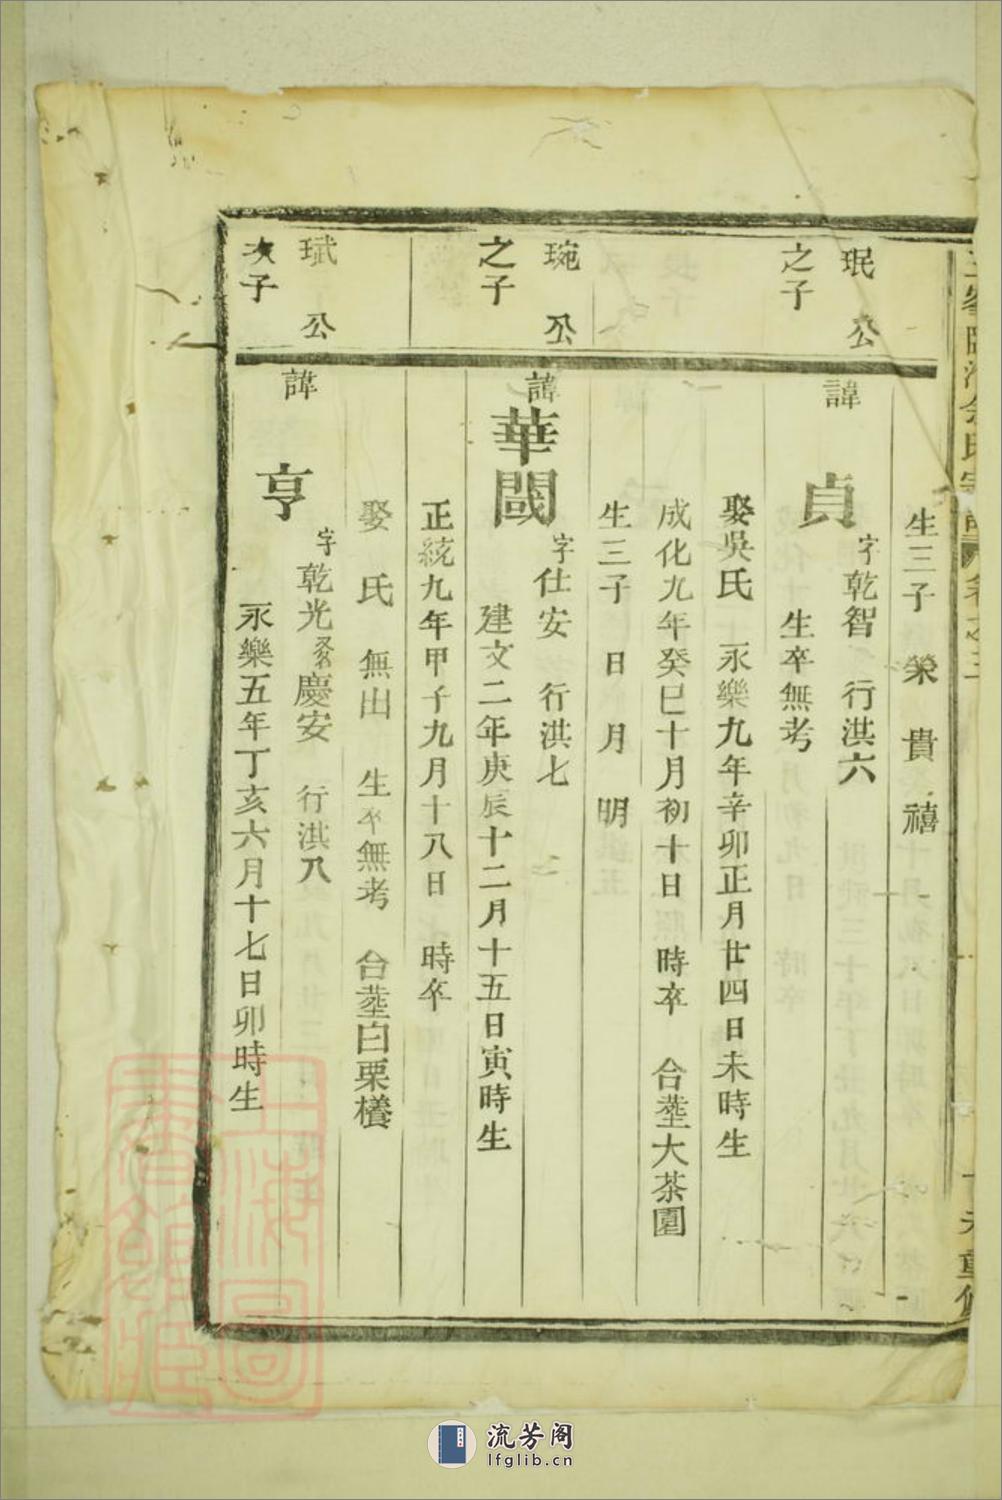 生三子 榮 貴 禧
珉公
之子
諱貞 字乾智 行洪六
生卒無考
娶吳氏 永樂九年辛卯正月廿四日未時生
成化九年癸巳十月初十日 時卒 合塟大茶園
生三子 日 月 明
琬公
之子
諱華閣 字仕安 行洪七
建文二年庚辰十二月十五日寅時生
正統九年甲子九月十八日 時卒
娶 氏 無出 生卒無考 合塟白栗欉
珷公
次子
諱亨 字乾光 又名慶安 行洪八
永樂五年丁亥六月十七日卯時生
上海圖
書館藏
流芳阁
lfglib.cn